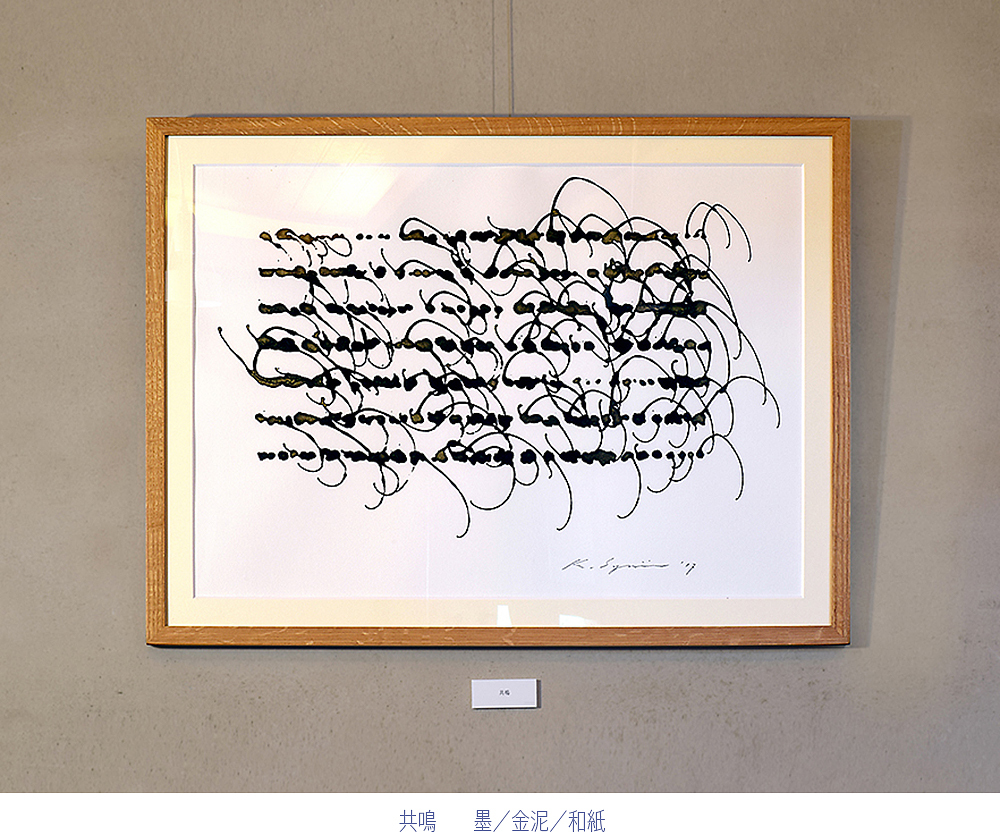 共鳴
共鳴 墨／金泥／和紙